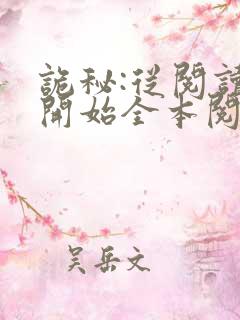 詭秘:從閱讀
開始全本閱
吴岳文